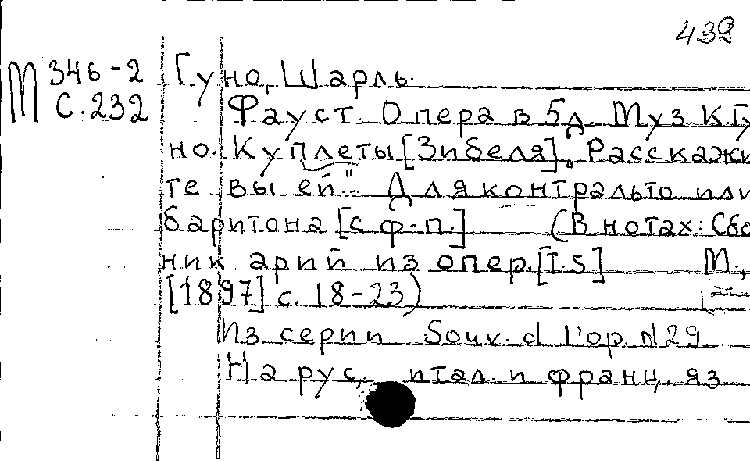 432
М 346-2
С. 232
Гуно, Шарль.
Фауст. Опера в 5д. Муз К Гу
но. Куплеты [Зибеля] „Расскажи
те вы ей" Для контральто или
баритона [с ф-п.] (В нотах: Сбо
ник арий из опер. [Т. 5] М.,
[1897] с. 18-23)
Из серии Souv. d l'op. N29
На рус., итал. и франц. яз